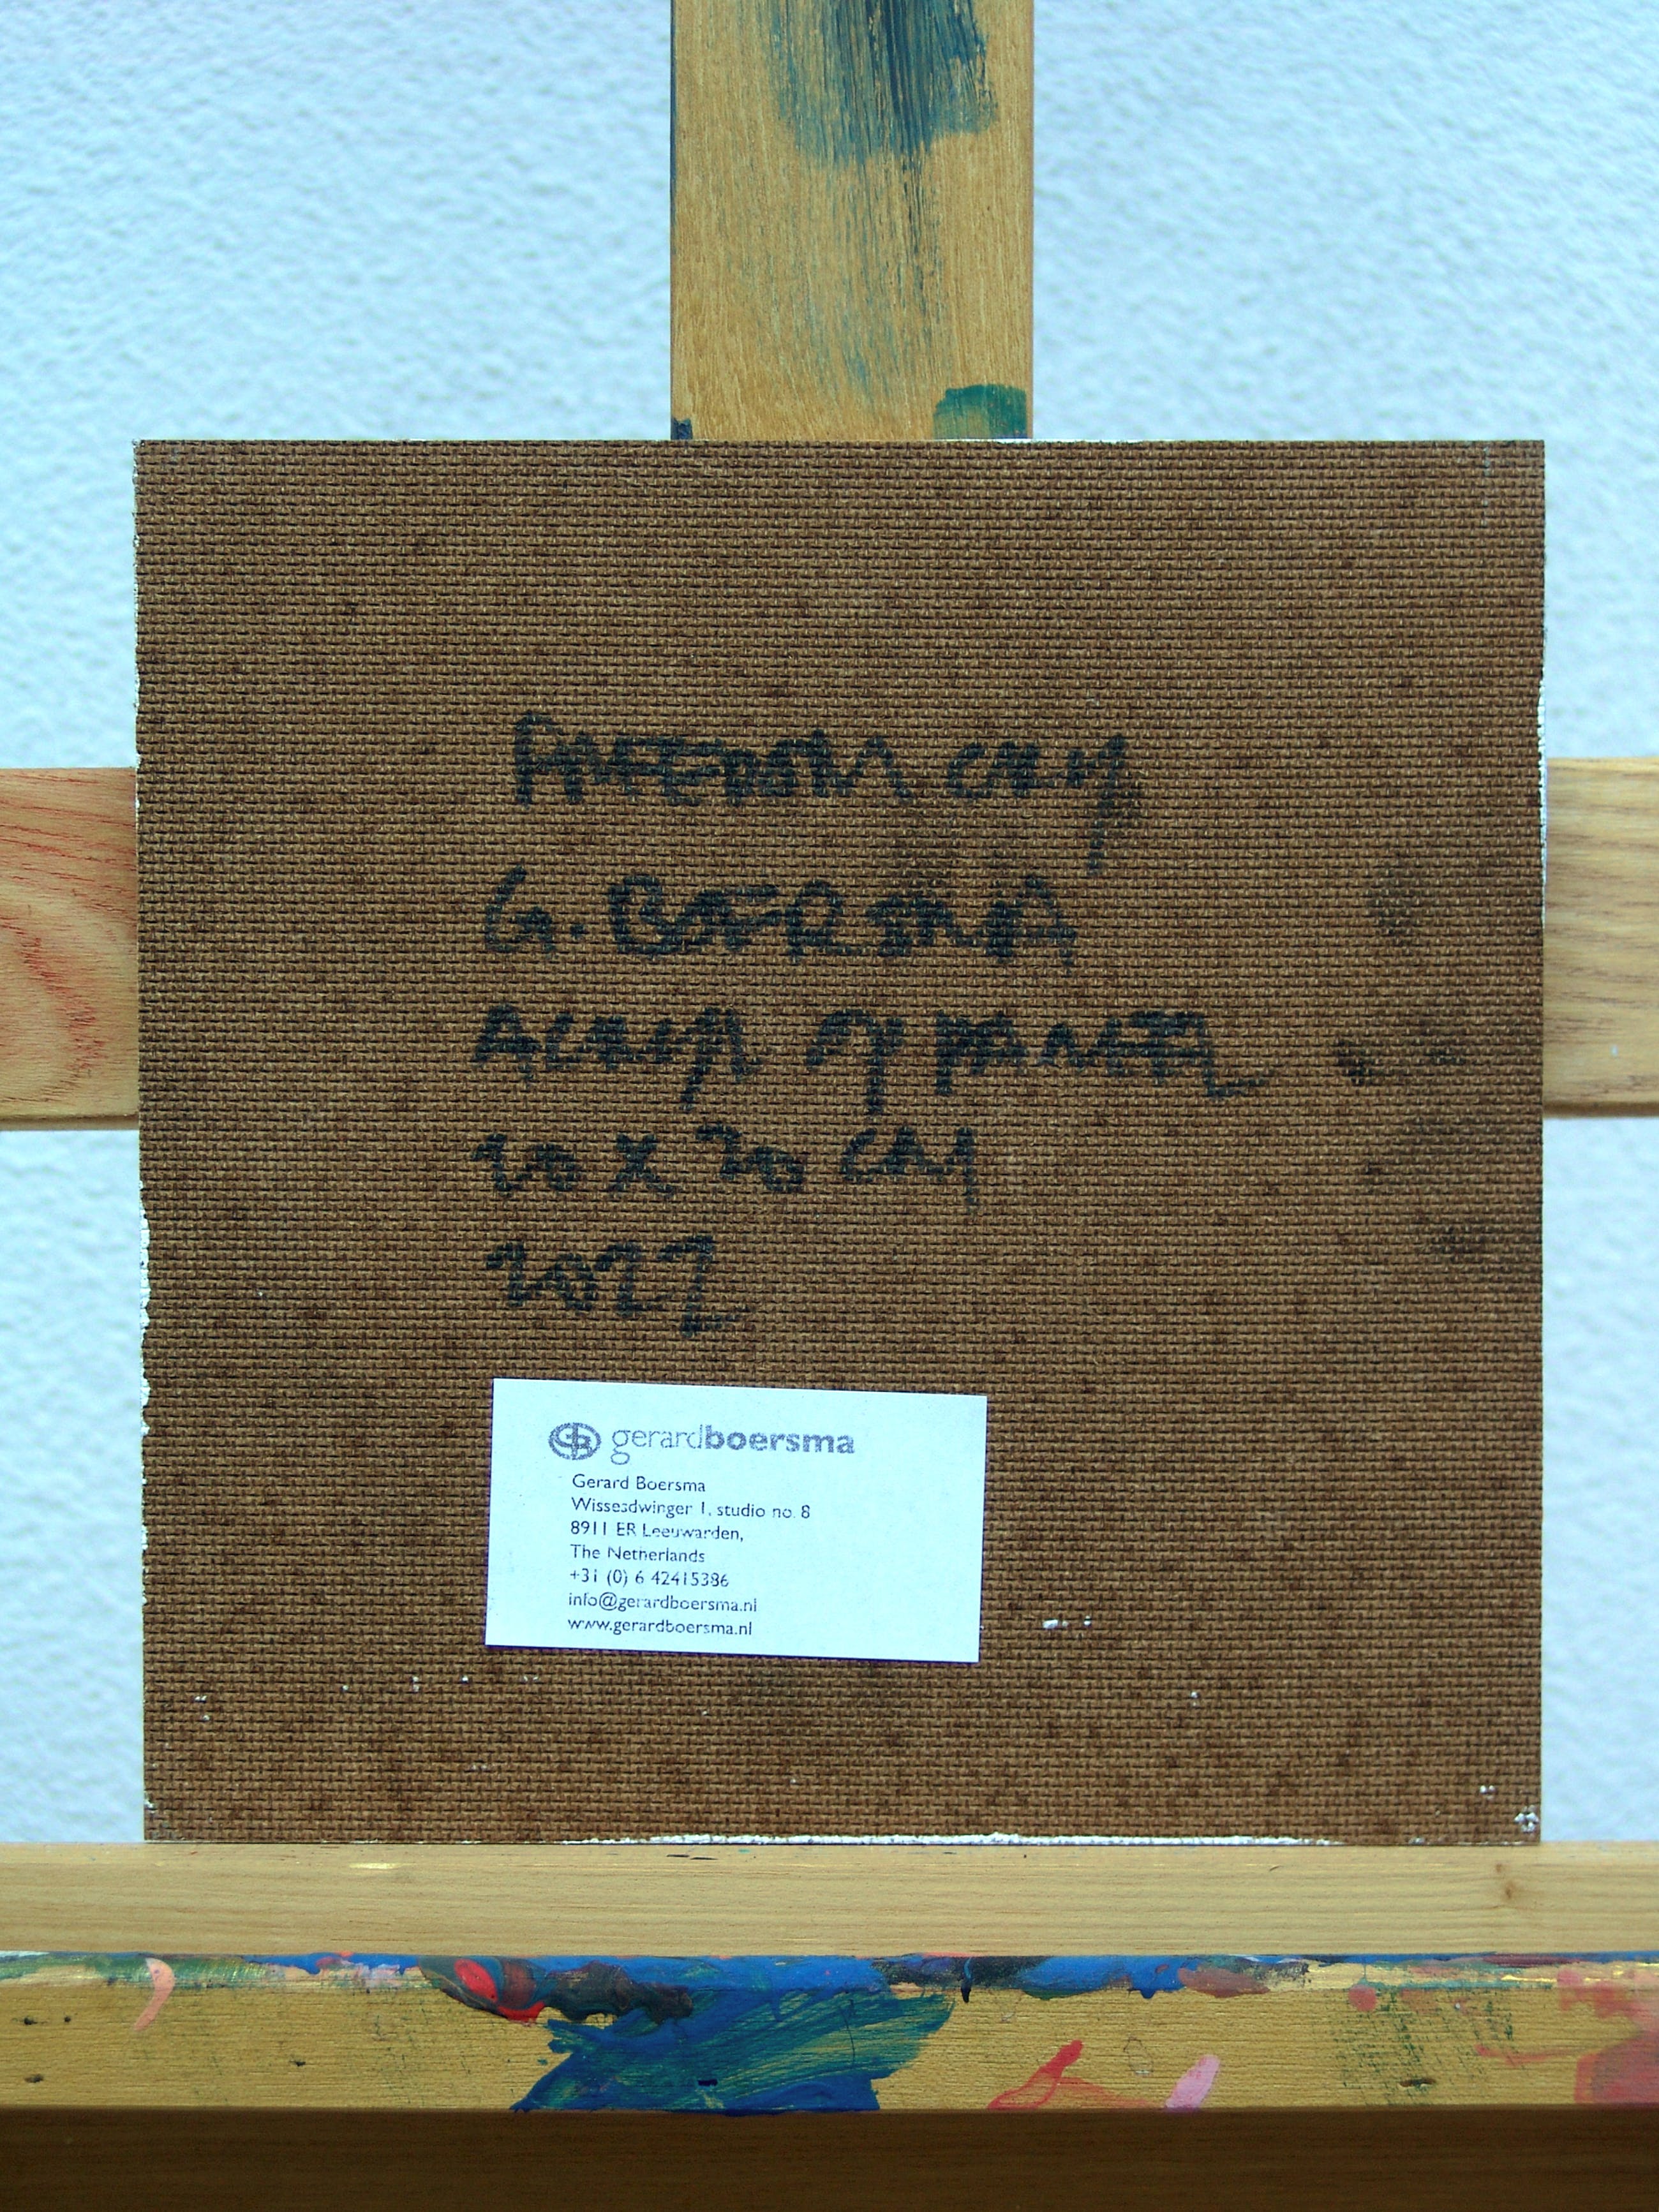 G. BOERSMA
20 x 20 cm
2022
GB gerardboersma
Gerard Boersma
Wissesdwinger 1, studio no. 8
8911 ER Leeuwarden,
The Netherlands
+31 (0) 6 42415386
info@gerardboersma.nl
www.gerardboersma.nl